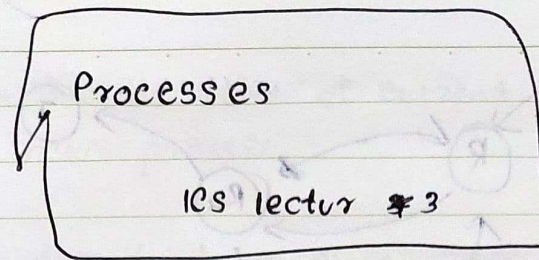 Processes
ICS lectur # 3